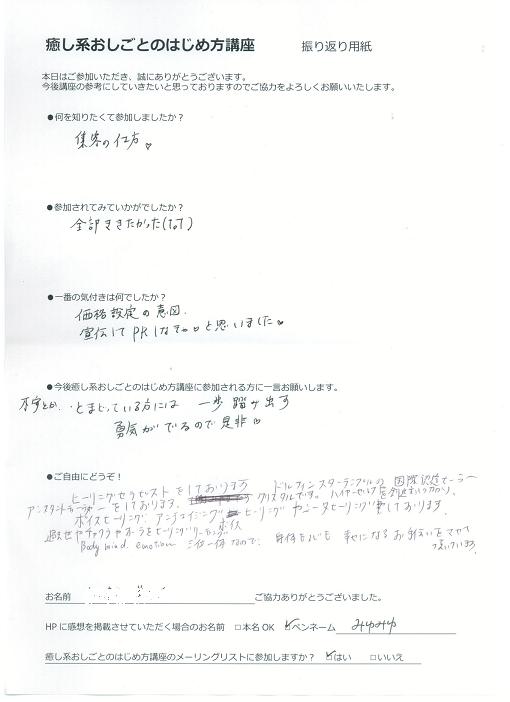 癒し系おしごとのはじめ方講座 振り返り用紙
本日はご参加いただき、誠にありがとうございます。
今後講座の参考にしていきたいと思っておりますのでご協力をよろしくお願いいたします。
●何を知りたくて参加しましたか？
集客の仕方♡
●参加されてみていかがでしたか？
全部ききたかった(です)
●一番の気付きは何でしたか？
価格設定の意図.
宣伝して PRしなきゃ と思いました♡
●今後癒し系おしごとのはじめ方講座に参加される方に一言お願いします。
とまどっている方には 一歩踏み出す
勇気がでるので是非♡
●ご自由にどうぞ！
ヒーリングセラピストをしております ドルフィンスター の 国際認定
をしております。 クリスタルです。ハイヤーセルフ
ボイスヒーリング ヒーリング ヒーリング しております
過去世やチャクラやオーラを
Body mind emotion 三位一体なので、身体も心も 幸せになるお手伝いをさせて
お名前 ご協力ありがとうございました。
HPに感想を掲載させていただく場合のお名前 □本名OK ☑ペンネーム みゆみゆ
癒し系おしごとのはじめ方講座のメーリングリストに参加しますか？ ☑はい □いいえ